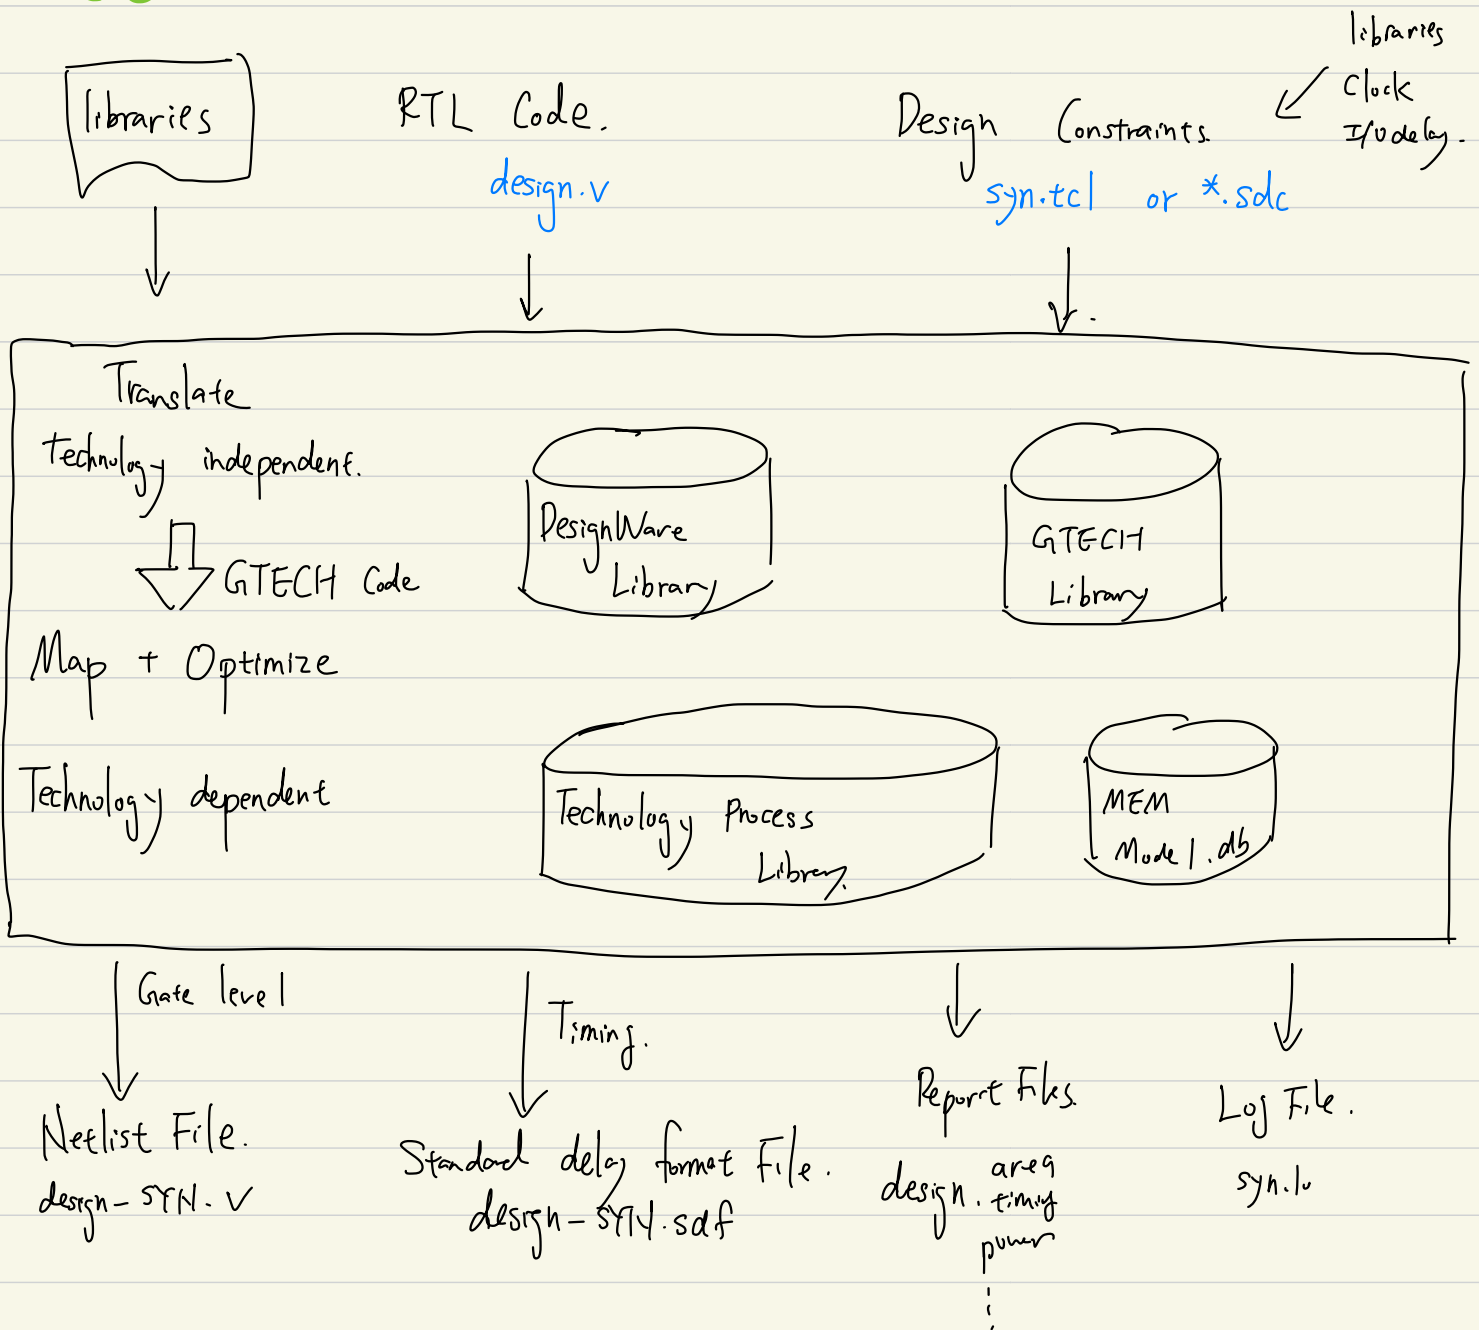 libraries
Clock
I/O delay.
libraries
RTL Code.
design.v
Design Constraints.
syn.tcl or *.sdc
Translate
Technology independent.
GTECH Code
Map + Optimize
Technology dependent
DesignWare
Library
GTECH
Library
Technology Process
Library.
MEM
Model.db
Gate level
Netlist File.
design-SYN.v
Timing.
Standard delay format File.
design-SYN.sdf
Report Files.
design.
area
timing
power
Log File.